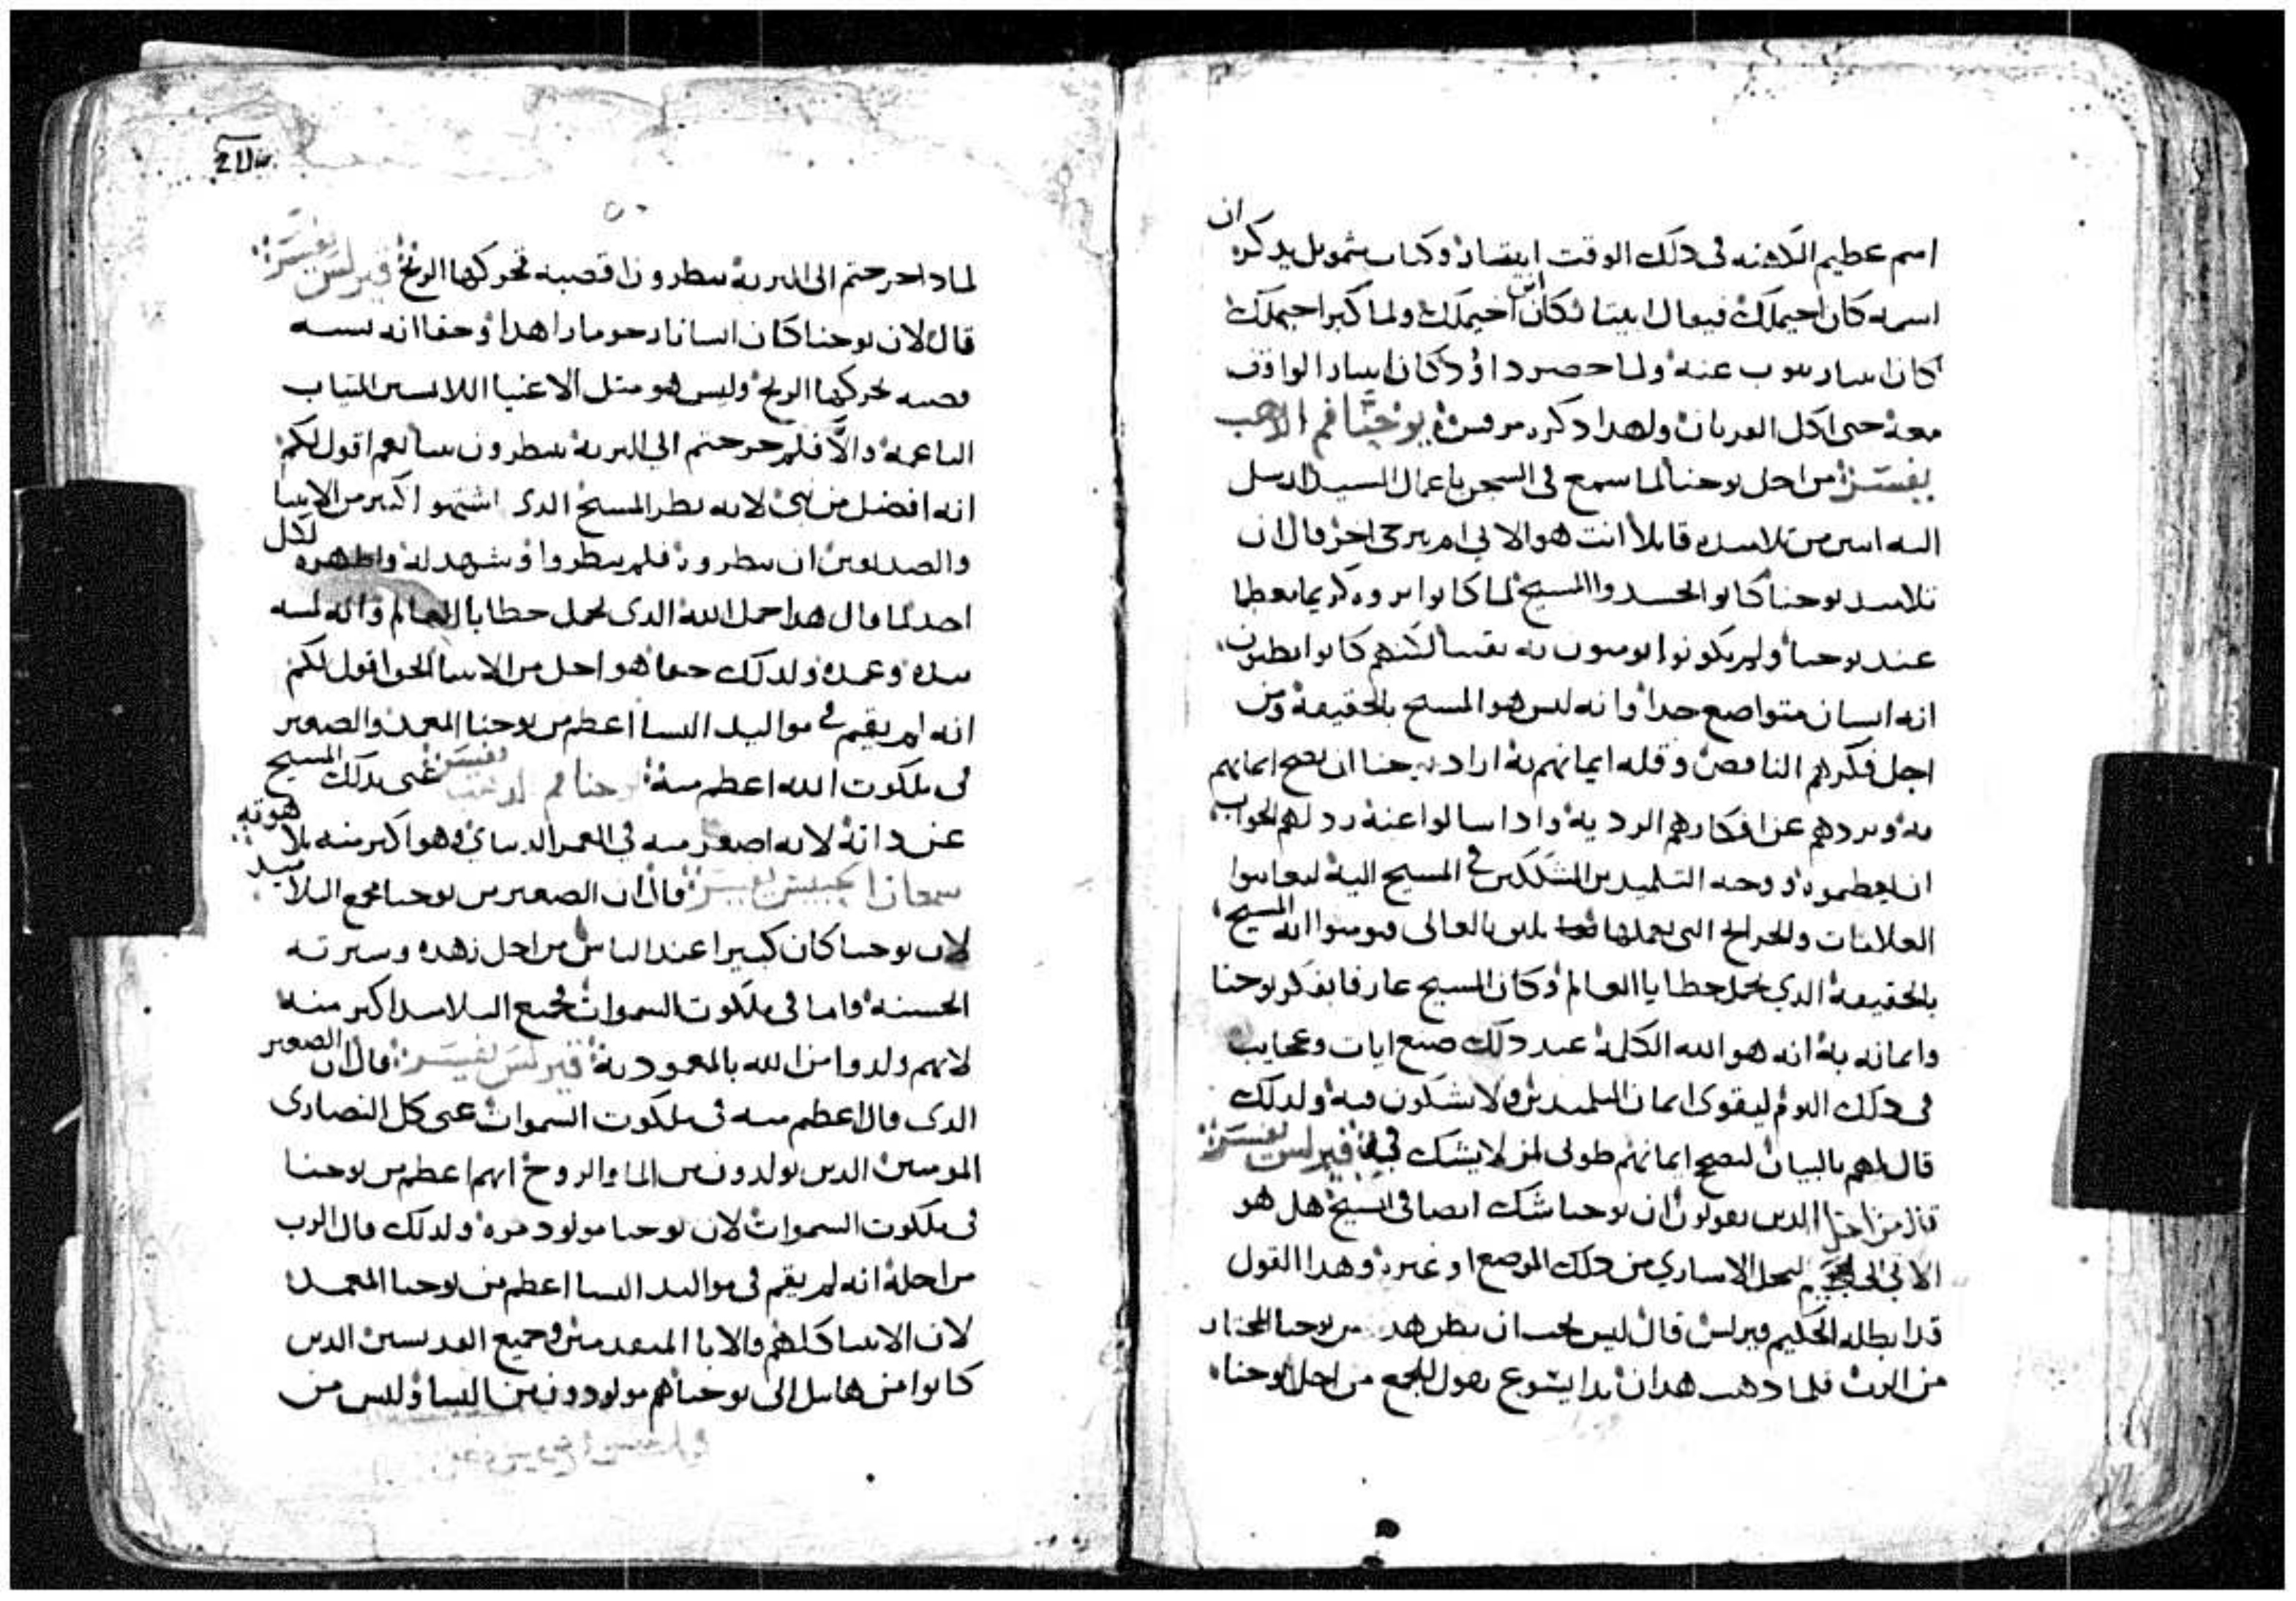 اسم عظيم الكهنه فى دلك الوقت ابيتار وكتاب شمويل يدكر ان
اسمه كان احيملك فيقال ابيتار كان ابن اخيملك ولما كبر احيملك
كان ابيتار ينوب عنه ولما حضر داوود كان ابيتار الواقف
معه حتى اكل القربان ولهدا دكره مرقس يوحنا فم الدهب
يفسر من اجل يوحنا لما سمع فى السجن باعمال السيد ارسل
اليه اتنين من تلاميده قايلا انت هو الاتي ام نترجى اخر قال ان
تلاميد يوحنا كانوا يحسدوا المسيح لما كانوا يروه كريما معظما
عند يوحنا ولم يكونوا يومنون به يقينا لكنهم كانوا يظنون
انه انسان متواضع جدا وانه ليس هو المسيح بالحقيقة ومن
اجل فكرهم الناقص وقله ايمانهم به اراد يوحنا ان يصح ايمانهم
به ويردهم عن افكارهم الرديه وادا سالوا عنه رد لهم الجواب
ان يعظموه ووجه التلميدين المتشككين فى المسيح اليه ليعاينوا
العلامات والجرايح التى يعملها تليق بالعالى فيومنوا انه المسيح
بالحقيقه الدي يحمل خطايا العالم وكان المسيح عارفا بفكر يوحنا
وايمانه به انه هو الله الكلمة عند دلك صنع ايات وعجايب
فى دلك اليوم ليقوى ايمان التلميدين ولا يشكون فيه ولدلك
قال لهم بالبيان ليصح ايمانهم طوبى لمن لا يشك في قيرلس يفسر
قال من اجل الدين يقولون ان يوحنا شك ايضا فى المسيح هل هو
الاتي الى الجحيم ليحل الاسارى من دلك الموضع او غيره وهدا القول
قد ابطله الحكيم قيرلس قال ليس يجب ان يظن هدا من يوحنا المختار
من الرب فلما دهب هدان بدا يشوع يقول للجمع من اجل يوحنا
لمادا خرجتم الى البرية تنظرون اقصبه تحركها الريح قيرلس يفسر
قال لان يوحنا كان انسانا زاهدا وحقا انه ليس
قصبه تحركها الريح وليس هو متل الاغنيا اللابسين التياب
الناعمة والا فلم خرجتم الى البرية تنظرون نبيا نعم اقول لكم
انه افضل من نبى لانه نظر المسيح الدى اشتهوا اكتر من الانبيا
والصديقين ان ينظروه فلم ينظروا وشهد له واظهره لكل
احد لما قال هدا حمل الله الدى يحمل خطايا العالم وانه لمسه
بيده وعمده ولدلك حقا هو اجل من الانبيا الحق اقول لكم
انه لم يقيم فى مواليد النسا اعظم من يوحنا المعمد والصغير
فى ملكوت الله اعظم منه يوحنا فم الدهب يفسر عنى بدلك المسيح
عن داته لانه اصغر منه فى العمر الدنياي وهو اكبر منه بلاهوته
سمعان الحبيس يفسر قال ان الصغير من يوحنا جميع التلاميد
لان يوحنا كان كبيرا عند الناس من اجل زهده وسيرته
الحسنه واما فى ملكوت السموات جميع التلاميد اكبر منه
لانهم ولدوا من الله بالمعمودية قيرلس يفسر قال ان الصغير
الدى قال اعظم منه فى ملكوت السموات عنى كل النصارى
المومنين الدين يولدون من الما والروح انهم اعظم من يوحنا
فى ملكوت السموات لان يوحنا مولود مره ولدلك قال الرب
من اجله انه لم يقم فى مواليد النسا اعظم من يوحنا المعمد
لان الانبيا كلهم والابا المتقدمين وجميع القديسين الدين
كانوا من هابيل الى يوحنا هم مولودون من النسا وليس من